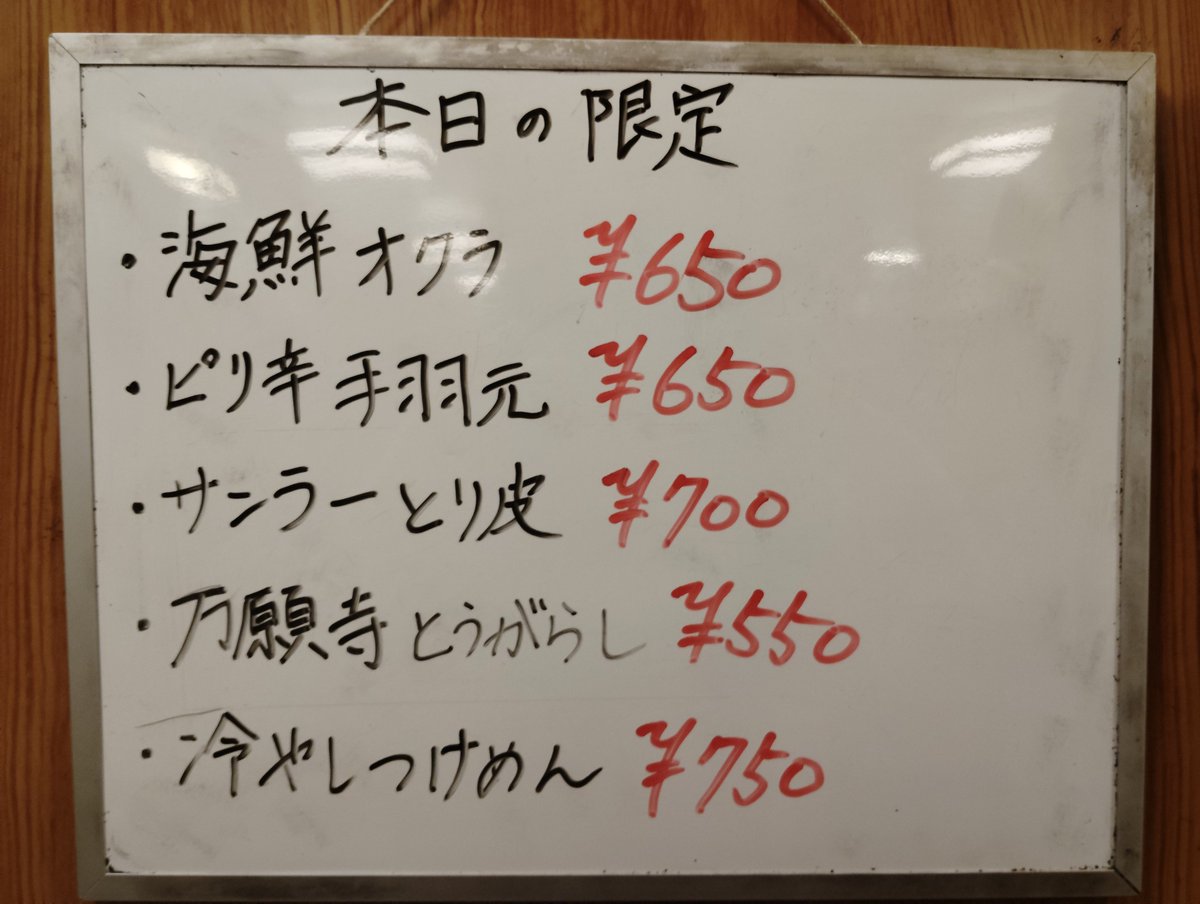 本日の限定
・海鮮オクラ ¥650
・ピリ辛手羽元 ¥650
・サンラーとり皮 ¥700
・万願寺とうがらし ¥550
・冷やしつけめん ¥750